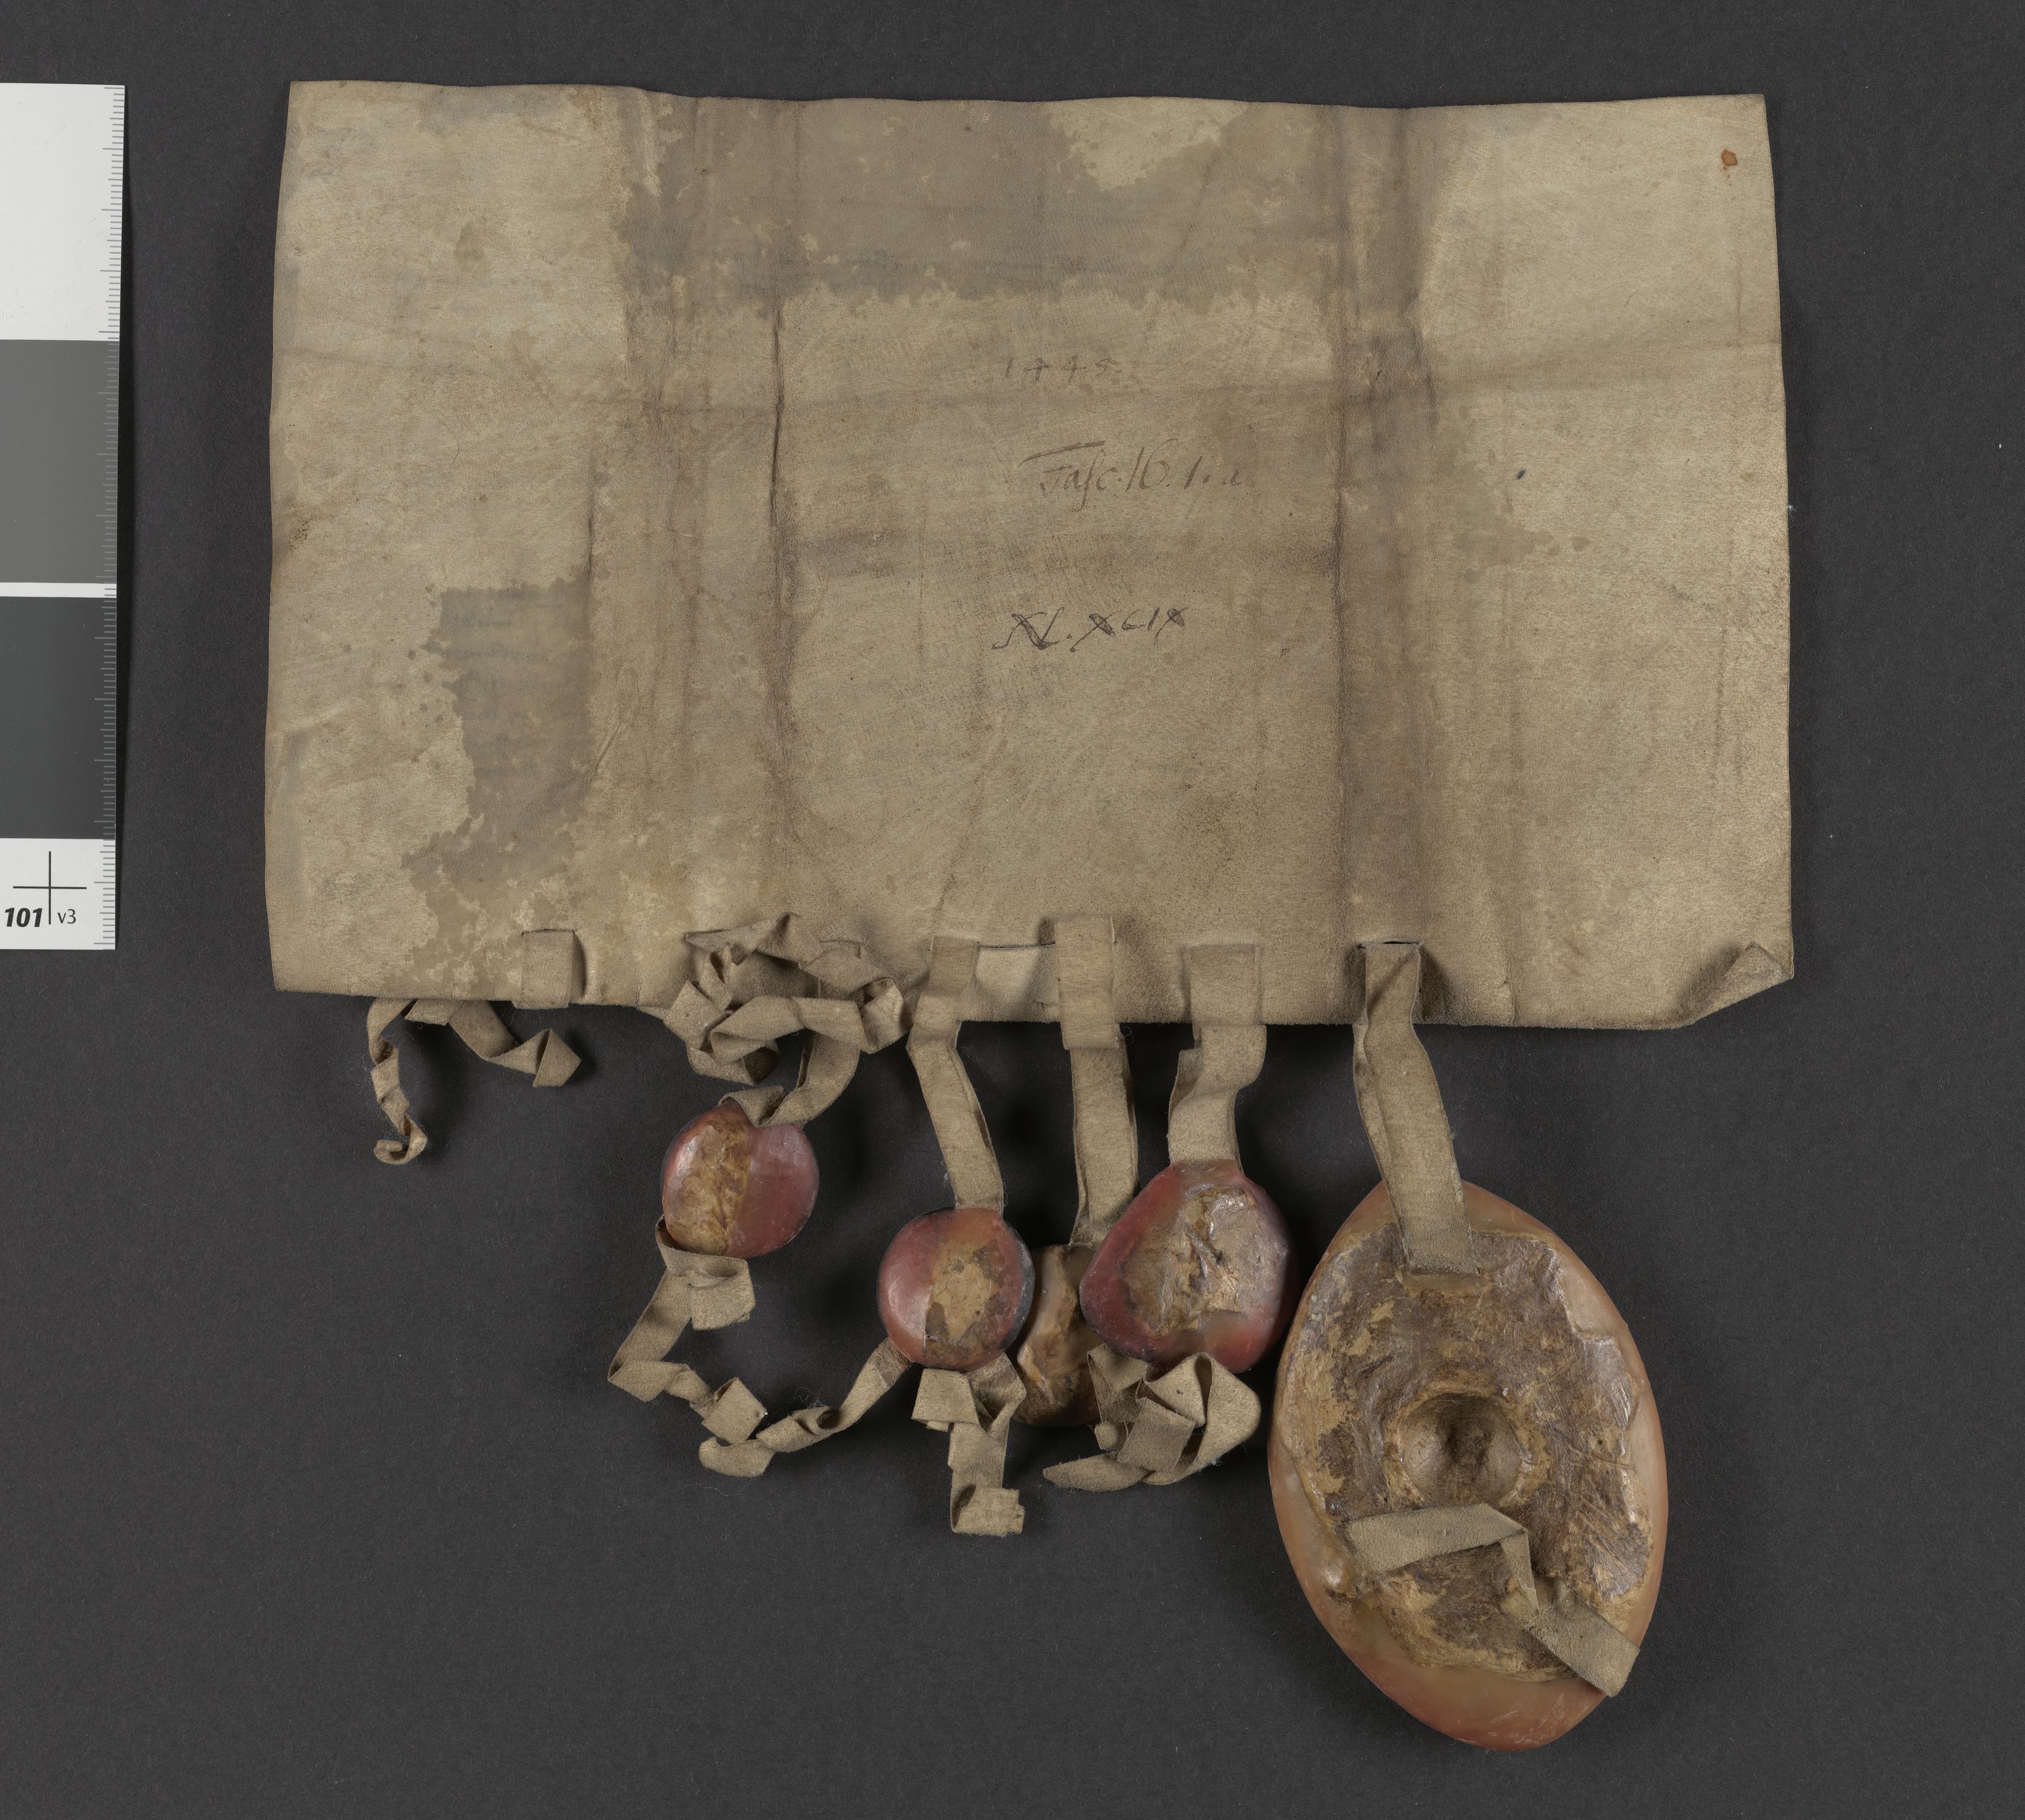 1445
Fasc. 16. 1. a
N. XCIX
101 v3